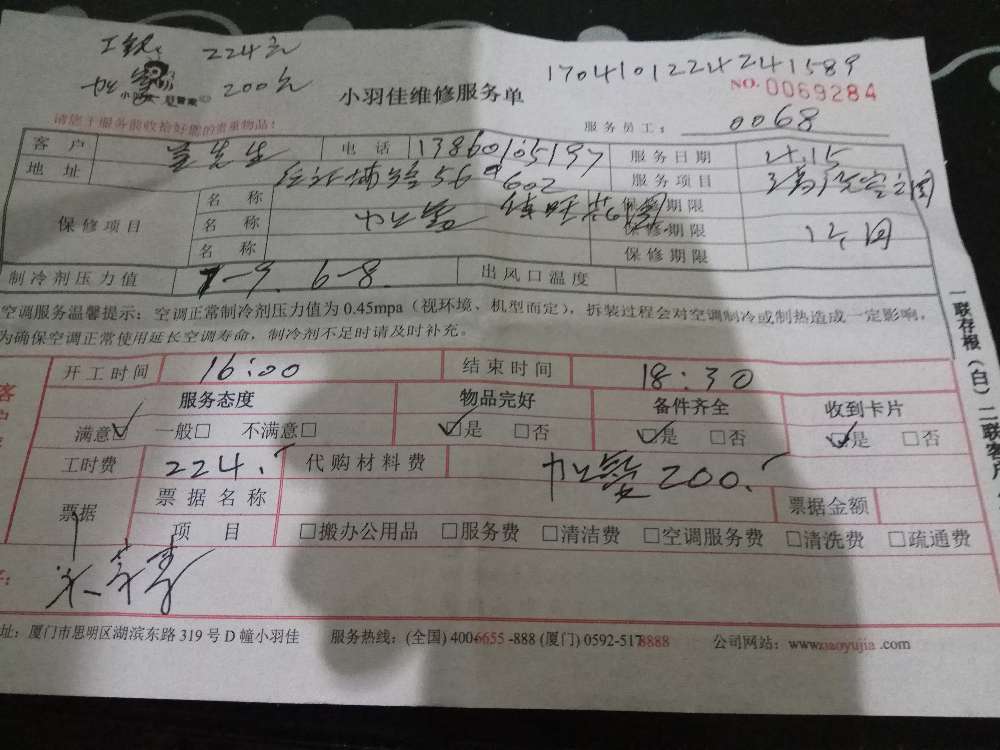 工钱: 224元
加氟 200元
1704101224241589
小羽佳维修服务单
NO.0069284
请您于服务前收拾好您的贵重物品!
服务员工: 0068
客户 先生 电话 13860105197 服务日期 4.15
地址 56 602 服务项目
保修项目 名称 保修期限
名称 加氟 保修期限
名称 保修期限
制冷剂压力值 6-8 出风口温度
空调服务温馨提示: 空调正常制冷剂压力值为 0.45mpa (视环境、机型而定), 拆装过程会对空调制冷或制热造成一定影响。
为确保空调正常使用延长空调寿命, 制冷剂不足时请及时补充。
开工时间 16:00 结束时间 18:30
服务态度 物品完好 备件齐全 收到卡片
满意☑ 一般□ 不满意□ ☑是 □否 ☑是 □否 ☑是 □否
工时费 224. 代购材料费 加氟 200.
票据 票据名称 票据金额
项目 □搬办公用品 □服务费 □清洁费 □空调服务费 □清洗费 □疏通费
址: 厦门市思明区湖滨东路 319 号 D 幢小羽佳 服务热线: (全国) 4006655-888 (厦门) 0592-5178888 公司网站: www.xiaoyujia.com
一联存根(白) 二联客户